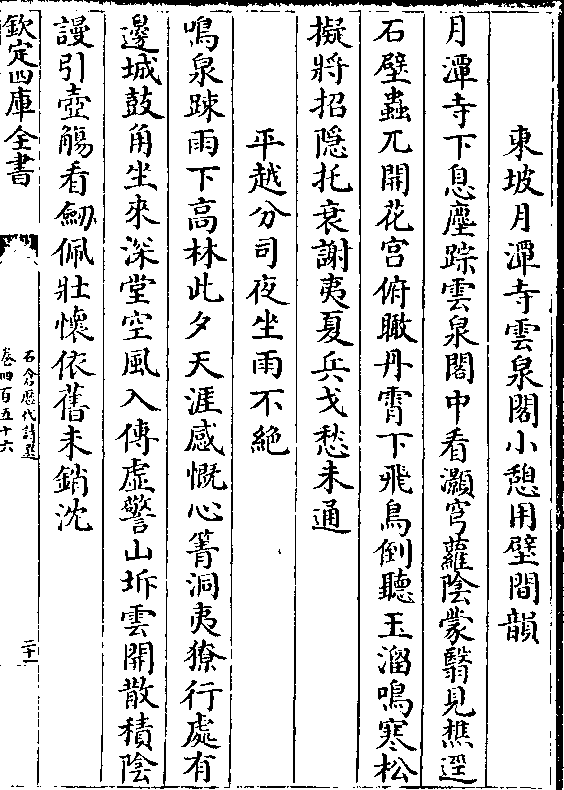 東坡月潭寺雲泉閣小憩用壁間韻
月潭寺下息塵踪雲泉閣中看灝穹蘿陰蒙翳見樵逕
石壁蟲兀開花宫俯瞰丹霄下飛鳥倒聽玉溜鳴寒松
擬將招隠托衰謝夷夏兵戈愁未通
平越分司夜坐雨不絶
鳴泉踈雨下高林此夕天涯感慨心箐洞夷獠行處有
邊城鼓角坐來深堂空風入傳虛警山坼雲開散積陰
謾引壺觴看劒佩壯懷依舊未銷沈
欽定四庫全書
石倉歷代詩選
卷四百五十六
二十一